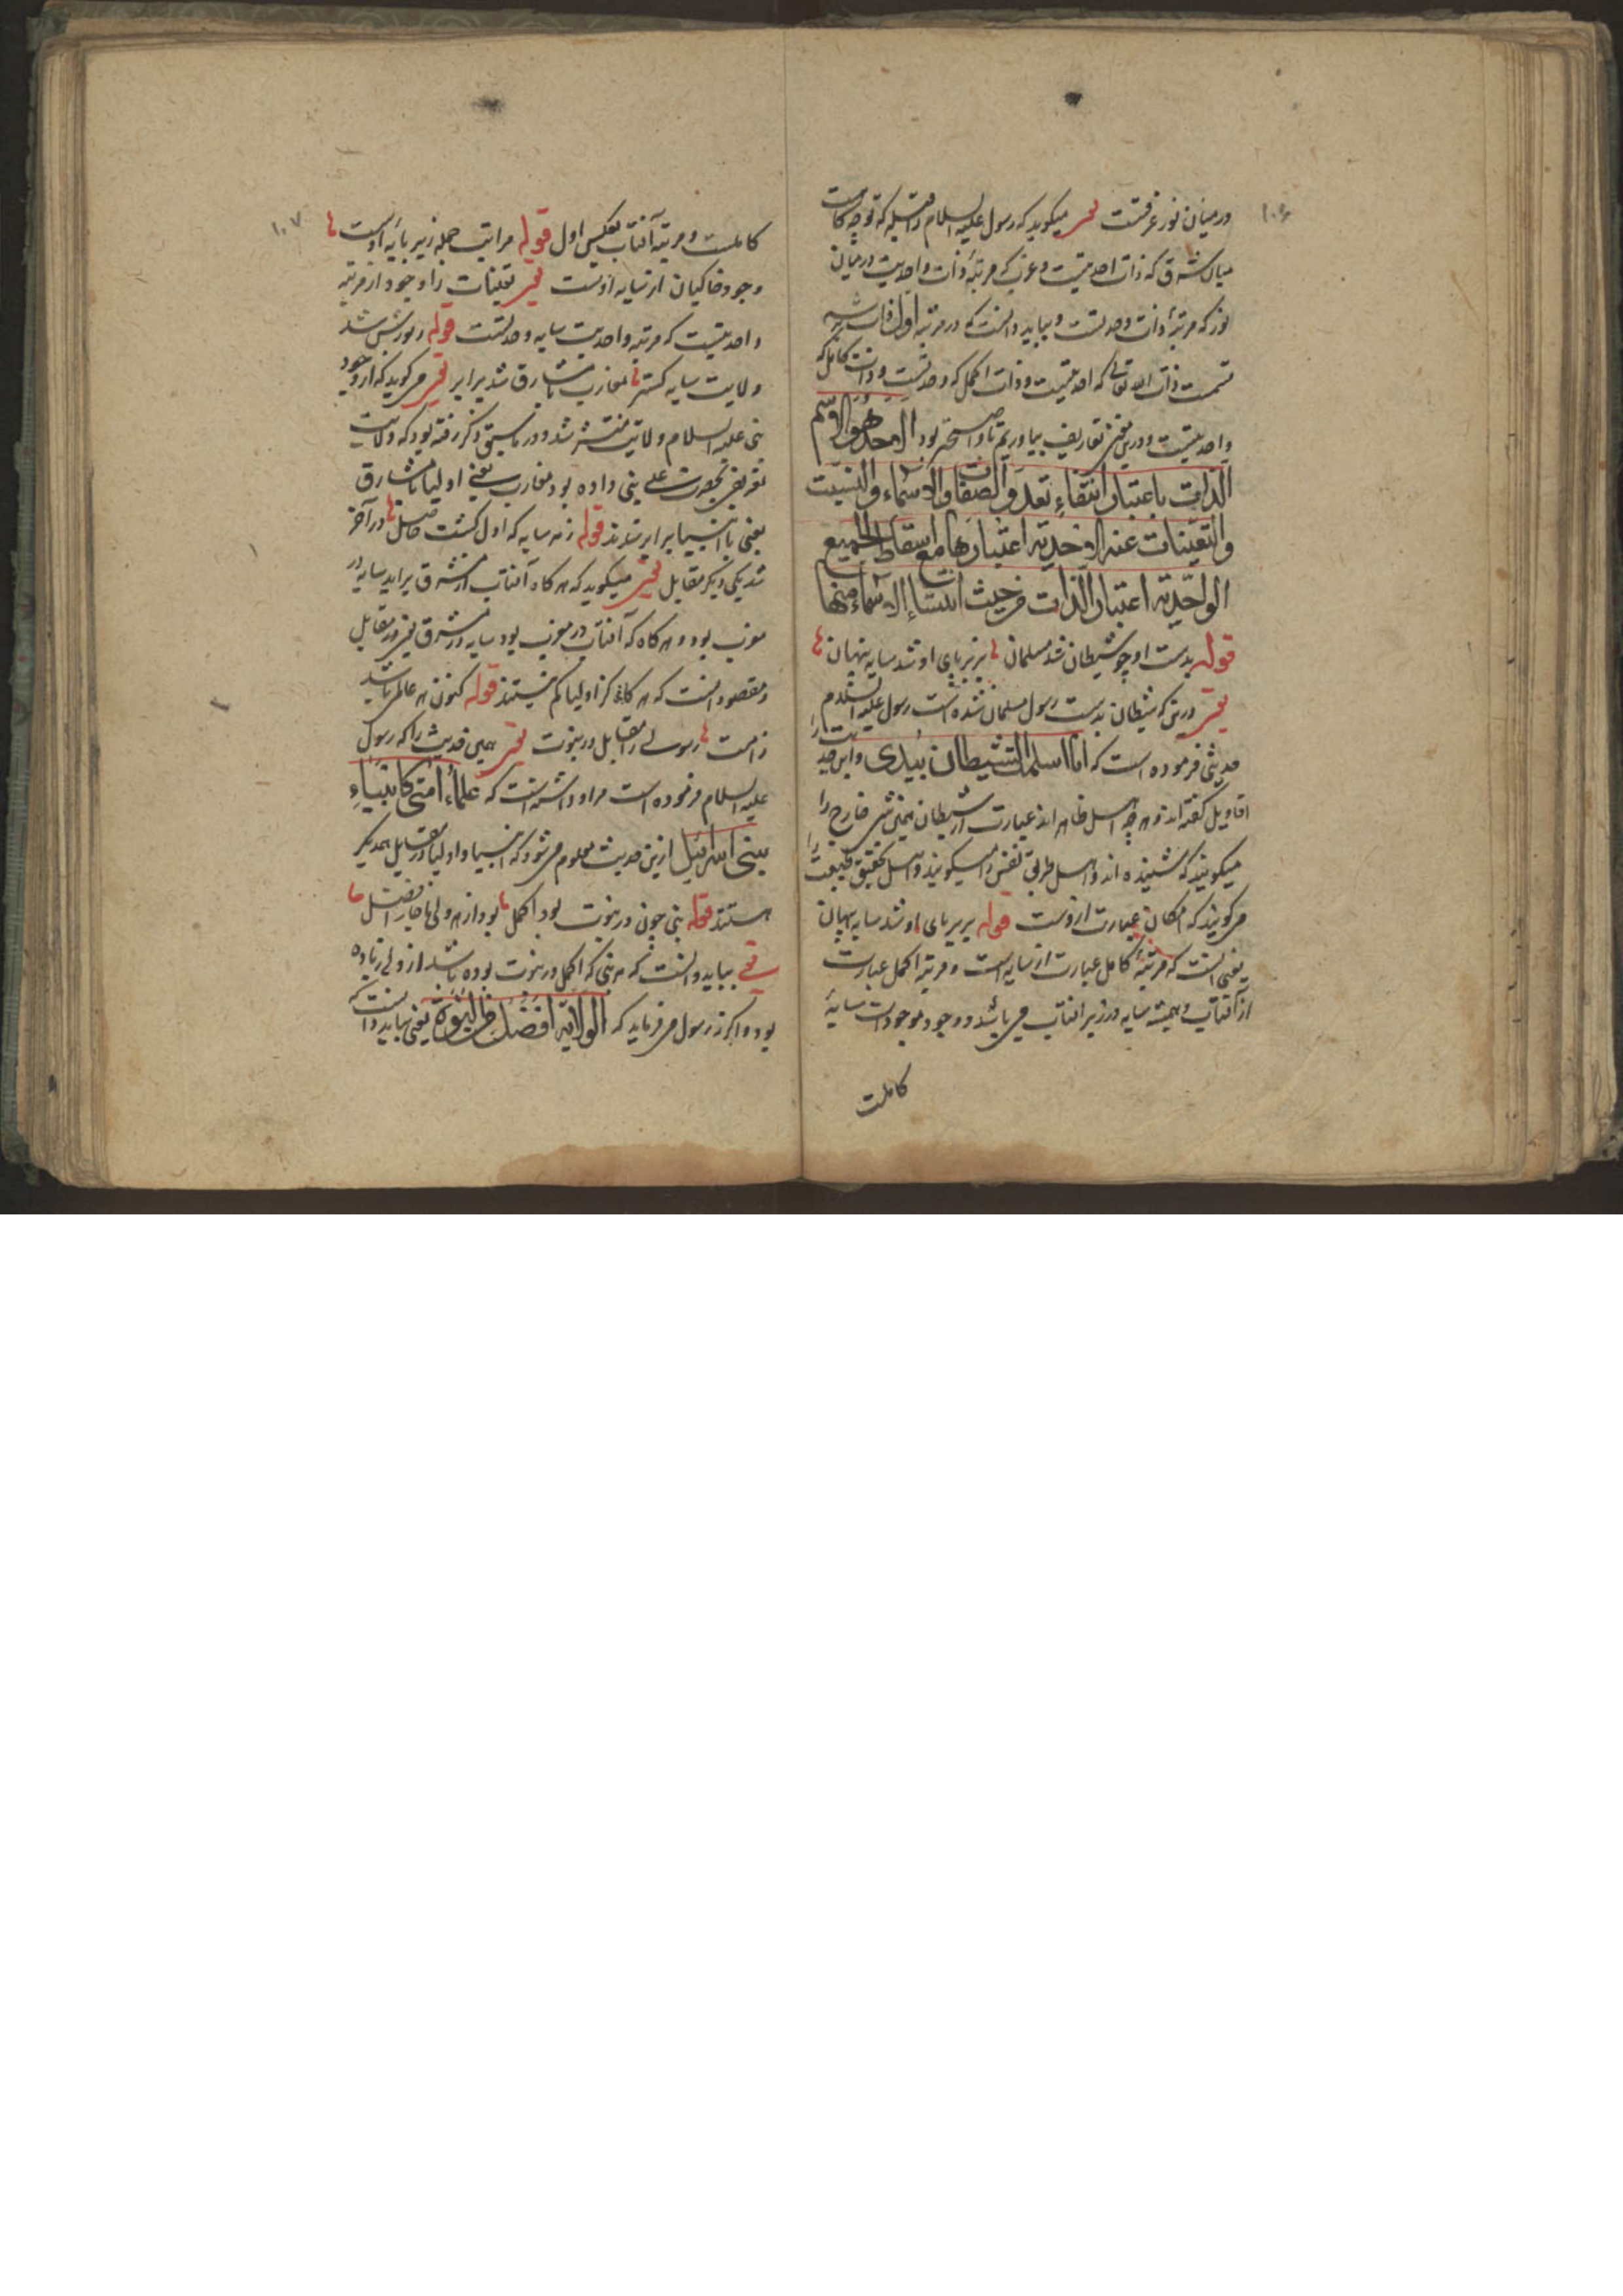 ۱۰۶
درمیان نور غرقست میکوید که رسول علیه السلام را قبله که توجه کاست
میان شرق که ذات احدیتست و غرب که مرتبهٔ ذات واحدیت درمیان
نور که مرتبهٔ ذات وحدتست و بباید دانست که در مرتبه اول ذات سه
قسمت ذات الله تعالی که احدیتست و ذات اکمل که وحدتست و ذات کامل که
واحدیتست و درین تعاریف بیاوریم تا واضحتر بود الاحد هو الاسم
الذات باعتبار انتفاء تعدد الصفات والاسماء والنسبت
والتعینات عنه الاحدیة اعتبارها مع اسقاط الجمیع
الواحدیة اعتبار الذات من حیث انتشاء الاسماء منها
قوله بدست او چو شیطان شد مسلمان بزیر پای او شد سایه پنهان
درینکه شیطان بدست رسول مسلمان شده است رسول علیه السلام
حدیثی فرموده است که اما اسلم الشیطان بیدی و این حدیث را
اقاویل گفته اند و هر چه اهل ظاهر اند عبارت از شیطان همین شی خارج را
میکویند که شنیده اند و اهل طریق نفس را میکویند و اهل تحقیق طبیعت را
میکویند که امکان عبارت ازوست قوله بزیر پای او شد سایه پنهان
یعنی آنست که مرتبهٔ کامل عبارت از سایه است و مرتبه اکمل عبارت
از آفتاب و همیشه سایه در زیر افتاب می باشد و وجود موجودات سایهٔ
کاملت
۱۰۷
کاملست و مرتبه آفتاب بعکس اول قوله مراتب جمله زیر پایه اوست
وجود خاکیان از سایه اوست تعینات را وجود از مرتبه
واحدیتست که مرتبه واحدیت سایه وحدتست قوله ز نورش شد
ولایت سایه کستر مغارب با مشارق شد برابر میکوید که از وجود
نبی علیه السلام ولایت منتشر شد و در ماسبق ذکر رفته بود که ولایت
بحضرت علی نبی داده بود مغارب یعنی اولیا با مشارق
یعنی با انبیا برابر شدند قوله ز هر سایه که اول کشت حاصل در آخر
شد یکی دیکر مقابل میکوید که هر کاه آفتاب از مشرق براید سایه در
مغرب بود و هر کاه که آفتاب در مغرب بود سایه در مشرق در مقابل
و مقصود آنست که هر کاه کز اولیا کم نیستند قوله کنون هر عالمی باشد
ز امت رسولی را مقابل در نبوت همین حدیث را که رسول
علیه السلام فرموده است مراد داشته است که علماء امتی کانبیاء
بنی اسرائیل ازین حدیث معلوم می شود که انبیا و اولیا در مقابل همدیکر
هستند قوله نبی چون در نبوت بود اکمل بود از هر ولی ناچار افضل
بباید دانست که هر نبی که اکمل در نبوت بوده باشد از ولی زیاده
بود و اکر رسول می فرماید که الولایة افضل من النبوة یعنی بباید دانست که